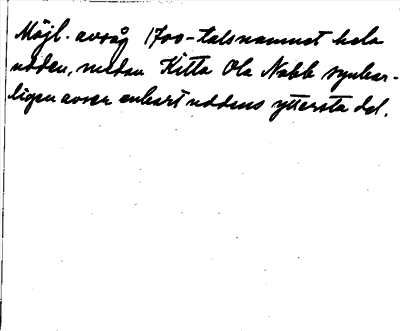 Möjl. avsåg 1700-talsnamnet hela
udden, medan Kitta Ola Nabb synbar-
ligen avser enbart uddens yttersta del.